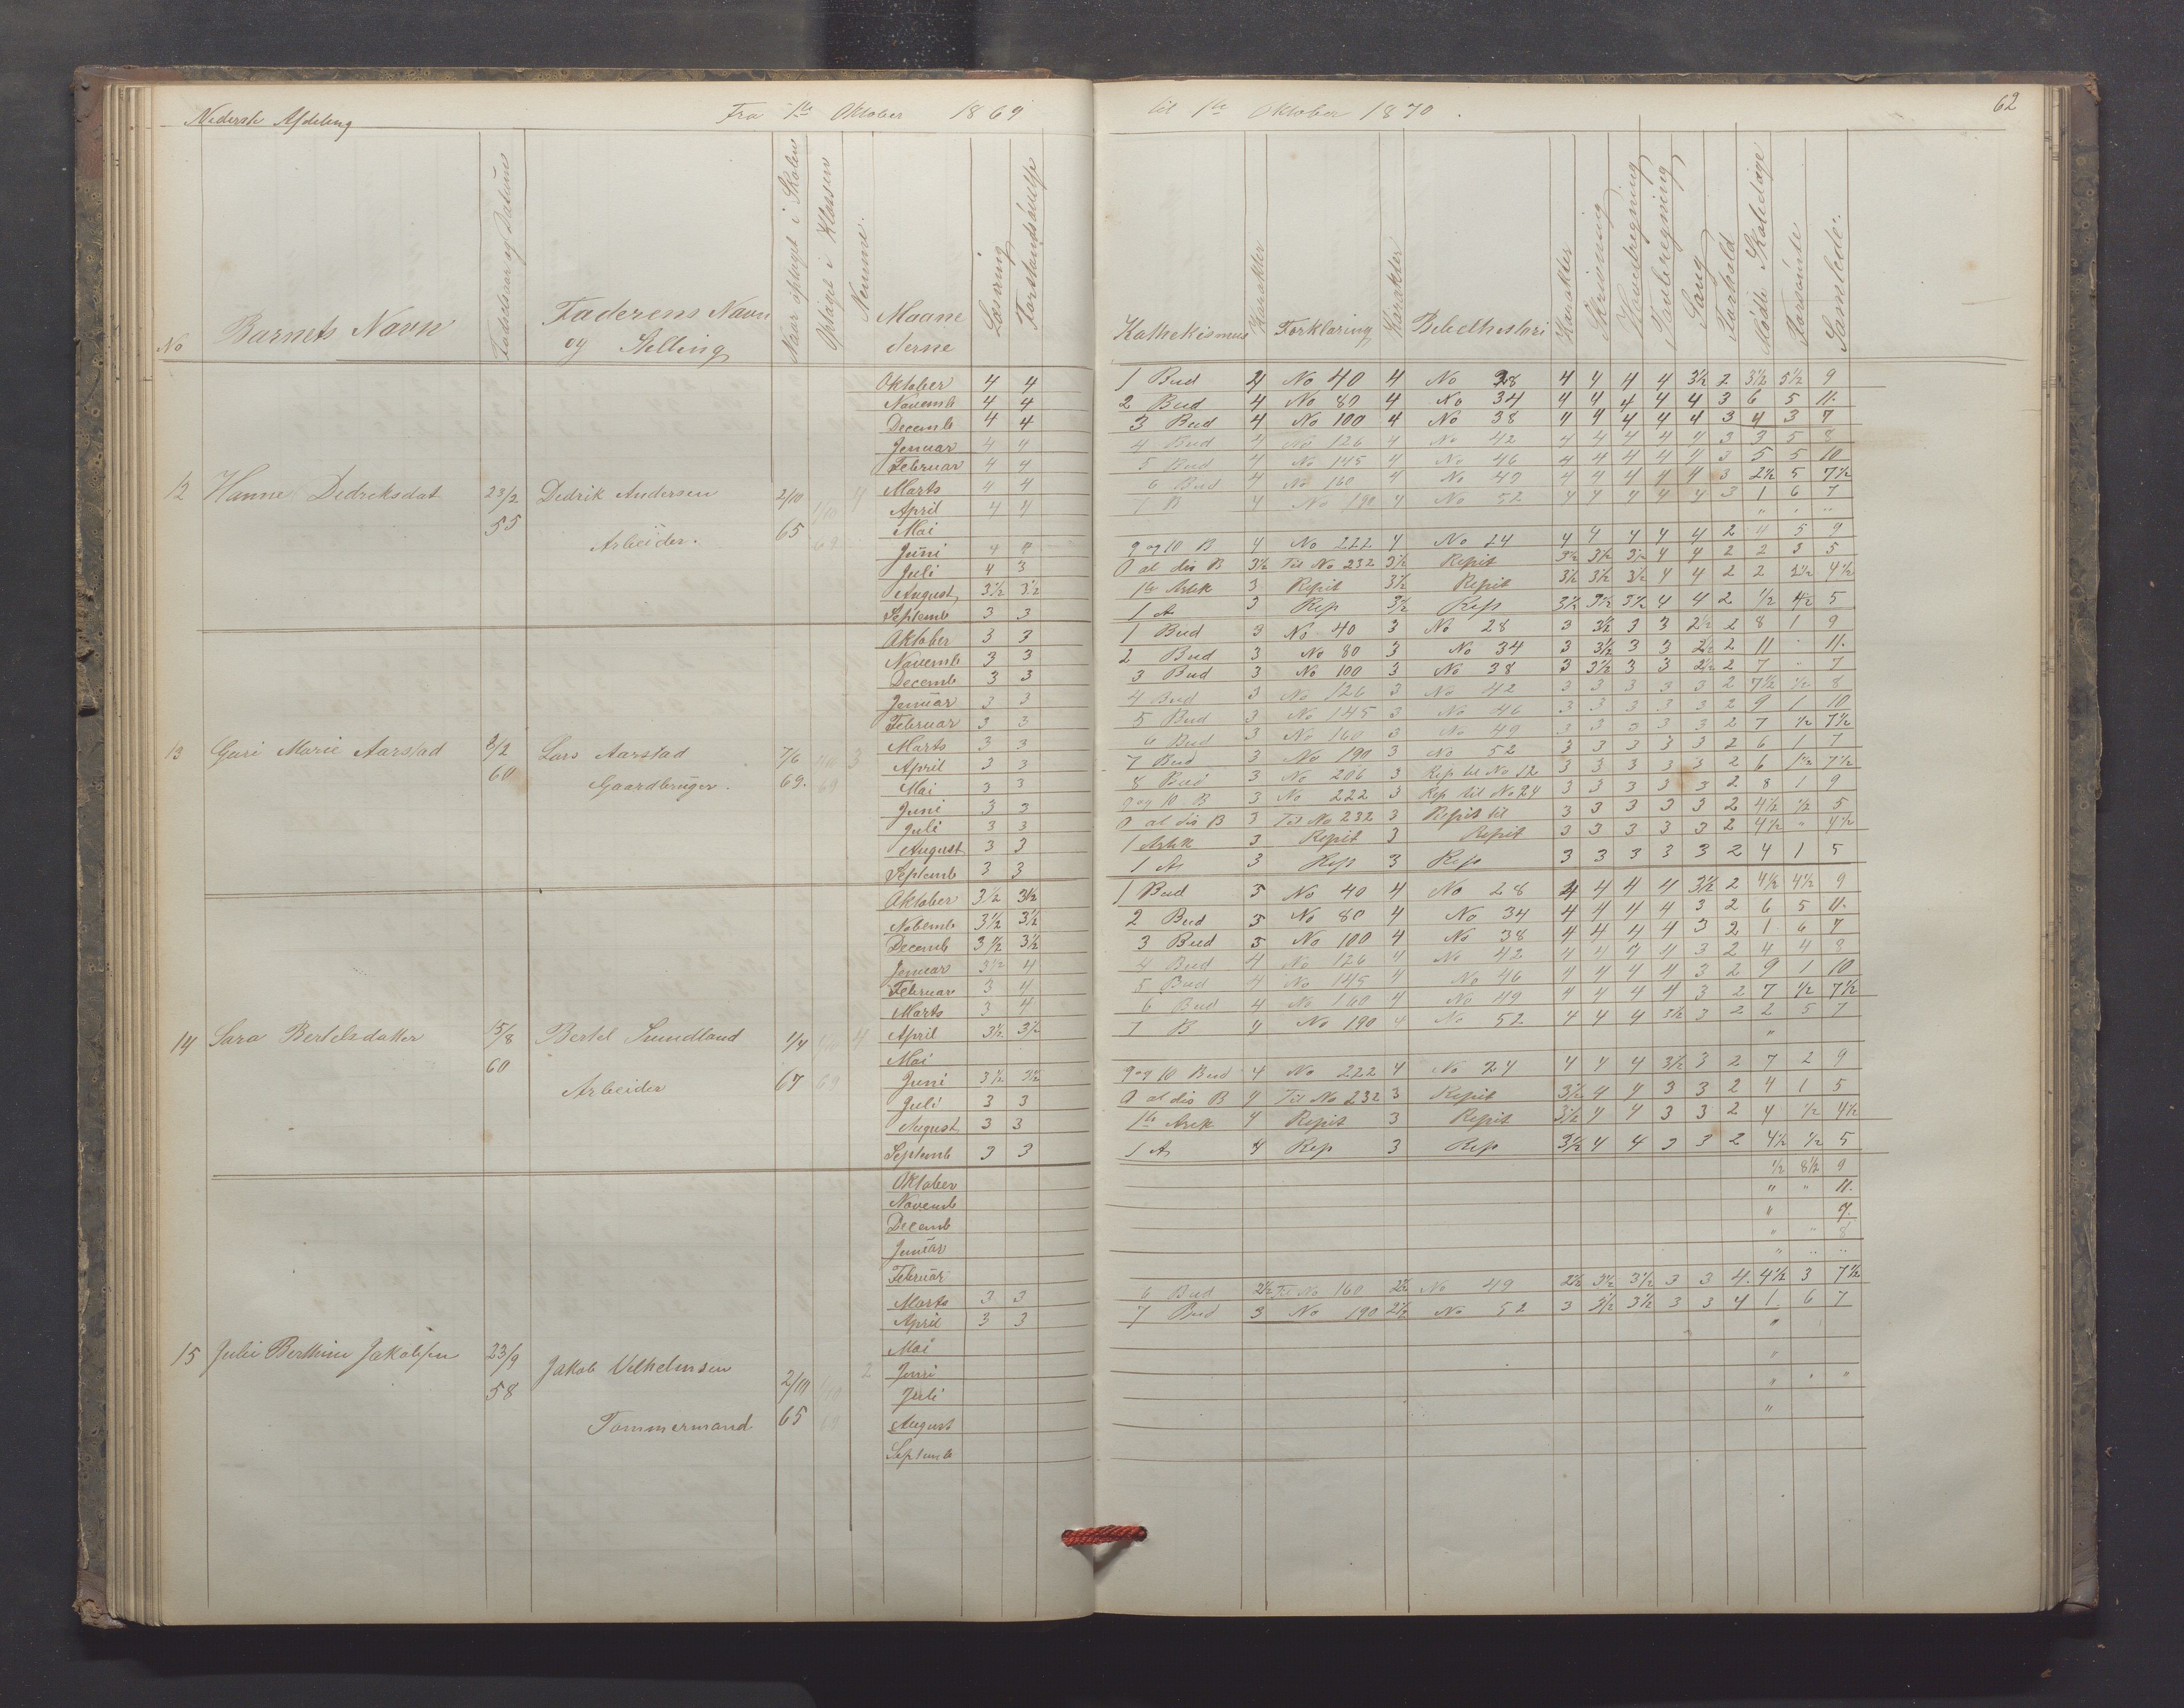 Nederste Afdeling Fra 1te Oktober 1869 til 1te Oktober 1870. 62
No Barnets Navn Fødselsaar og Datum Faderens Navn og Stilling Naar optaget i Skolen Optaget i Klassen Nemme. Maanederne Læsning Forstandsøvelse Kathekismus Karakter Forklaring Karakter Bibelhistori Karakter Skrivning Hovedregning Tavleregning Sang Forhold Mødte Skoledage Forsømte Samlede.
Oktober 4 4 1 Bud 4 No 40 4 No 28 4 4 4 4 3½ 2 3½ 5½ 9
Novemb 4 4 2 Bud 4 No 80 4 No 34 4 4 4 4 4 3 6 5 11.
Decemb 4 4 3 Bud 4 No 100 4 No 38 4 4 4 4 4 3 4 3 7
Januar 4 4 4 Bud 4 No 126 4 No 42 4 4 4 4 4 3 3 5 8
Februar 4 4 5 Bud 4 No 145 4 No 46 4 4 4 4 4 3 5 5 10
12 Hanne Dedriksdat 23/2 55 Dedrik Andersen Arbeider. 2/10 65 1/10 69 4
Marts 4 4 6 Bud 4 No 160 4 No 49 4 4 4 4 4 3 2½ 5 7½
April 4 4 7 B 4 No 190 4 No 52 4 4 4 4 4 3 1 6 7
Mai
Juni 4 4 9 og 10 B 4 No 222 4 No 24 4 4 4 4 4 2 4 5 9
Juli 4 3 O al dis B 3½ Til No 232 3½ Repit 3½ 3½ 3½ 4 4 2 2 3 5
August 3½ 3½ 1te Artik 3 Repit 3½ Repit 3½ 3½ 3½ 4 4 2 2 2½ 4½
Septemb 3 3 1 A 3 Rep 3½ Rep 3½ 3½ 3½ 4 4 2 ½ 4½ 5
Oktober 3 3 1 Bud 3 No 40 3 No 28 3 3½ 3 3 2½ 2 8 1 9
Novemb 3 3 2 Bud 3 No 80 3 No 34 3 3½ 3 3 2½ 2 11 " 11.
Decemb 3 3 3 Bud 3 No 100 3 No 38 3 3½ 3 3 2½ 2 7 " 7
Januar 3 3 4 Bud 3 No 126 3 No 42 3 3 3 3 3 2 7½ ½ 8
Februar 3 3 5 Bud 3 No 145 3 No 46 3 3 3 3 3 2 9 1 10
13 Guri Marie Aarstad 2/2 60 Lars Aarstad Gaardbruger. 7/6 69. 1/10 69 3
Marts 3 3 6 Bud 3 No 160 3 No 49 3 3 3 3 3 2 7 ½ 7½
April 3 3 7 Bud 3 No 190 3 No 52 3 3 3 3 3 2 6 1 7
Mai 3 3 8 Bud 3 No 206 3 Rep til No 12 3 3 3 3 3 2 6 1½ 7½
Juni 3 3 9 og 10 B 3 No 222 3 Rep til No 24 3 3 3 3 3 2 8 1 9
Juli 3 3 O al dis B 3 Til No 232 3 Repit til 3 3 3 3 3 2 4½ ½ 5
August 3 3 1 Artik 3 Repit 3 Repit 3 3 3 3 3 2 4½ " 4½
Septemb 3 3 1 A 3 Rep 3 Rep 3 3 3 3 3 2 4 1 5
Oktober 3½ 3½ 1 Bud 3 No 40 4 No 28 4 4 4 4 3½ 2 4½ 4½ 9
Novemb 3½ 3½ 2 Bud 3 No 80 4 No 34 4 4 4 4 3 2 6 5 11.
Decemb 3½ 3½ 3 Bud 3 No 100 4 No 38 4 4 4 4 3 2 1 6 7
Januar 3½ 4 4 Bud 4 No 126 4 No 42 4 4 4 4 3 2 4 4 8
Februar 3 4 5 Bud 4 No 145 4 No 46 4 4 4 4 3 2 9 1 10
Marts 3 4 6 Bud 4 No 160 4 No 49 4 4 4 4 3 2 7 ½ 7½
14 Sara Bertelsdatter 15/8 60 Bertel Sundland Arbeider 1/4 67 69 4
April 3½ 3½ 7 B 4 No 190 4 No 52 4 4 4 3½ 3 2 2 5 7
Mai "
Juni 3½ 3½ 9 og 10 Bud 4 No 222 4 No 24 4 4 4 3½ 3 2 7 2 9
Juli 3 3 O al dis B 4 Til No 232 3 Repit 3½ 4 4 3 3 2 4 1 5
August 3 3 1te Artk 4 Repit 3 Repit 3½ 4 4 3 3 2 4 ½ 4½
Septemb 3 3 1 A 4 Rep 3 Rep 3½ 4 4 3 3 2 4½ ½ 5
Oktober ½ 8½ 9
Novemb " " 11.
Decemb " 7.
Januar " " 8
Februar " " "
Marts 3 3 6 Bud 2½ Til No 160 2½ No 49 2½ 3½ 3½ 3 3 4. 4½ 3 7½
April 3 3 7 Bud 3 No 190 2½ No 52 3 3½ 3½ 3 3 4 1. 6 7
15 Julie Berthine Jakobsen 23/9 58 Jakob Vilhelmsen Tømmermand. 2/10 65 1/10 69 2
Mai "
Juni "
Juli " " "
August "
Septemb